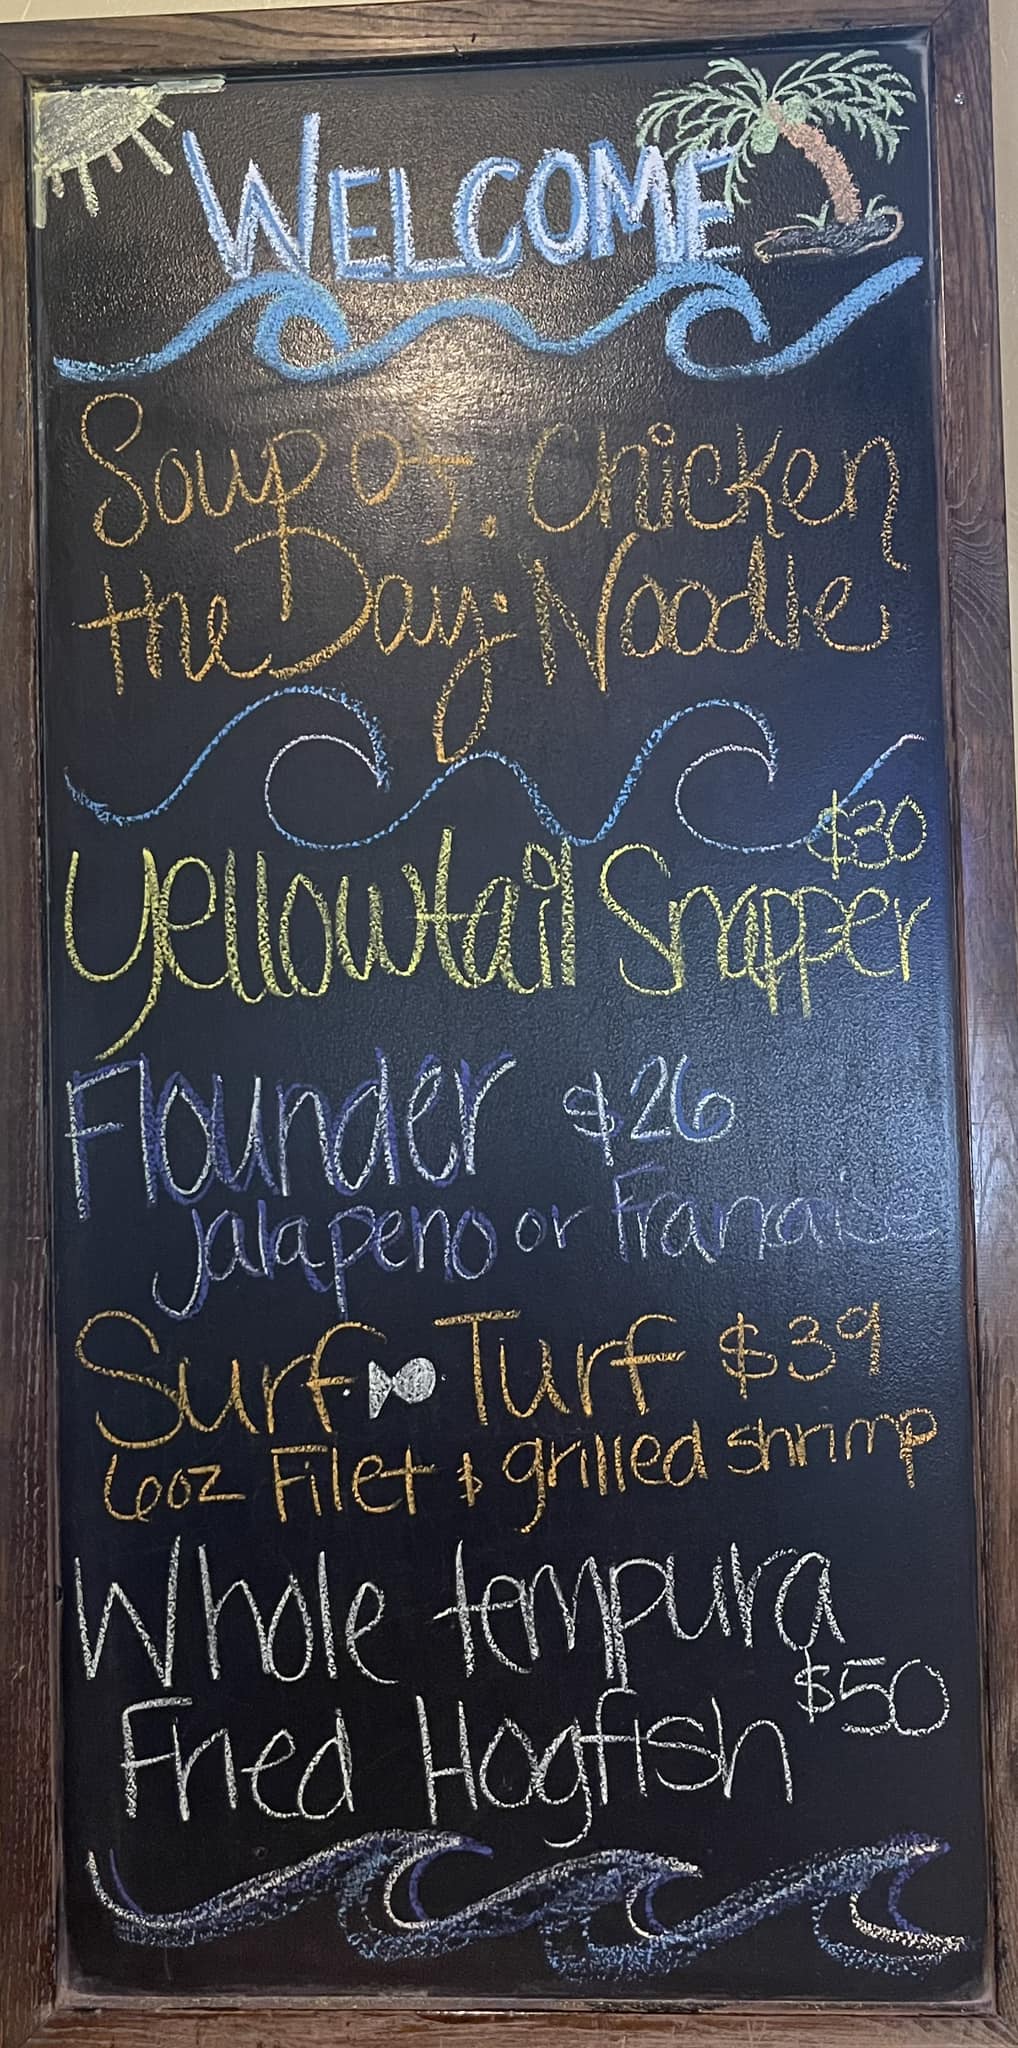 WELCOME
Soup of Chicken
the Day: Noodle
$30
Yellowtail Snapper
Flounder $26
Jalapeno or Francaise
Surf Turf $39
6oz Filet & grilled shrimp
Whole tempura
Fried Hogfish $50